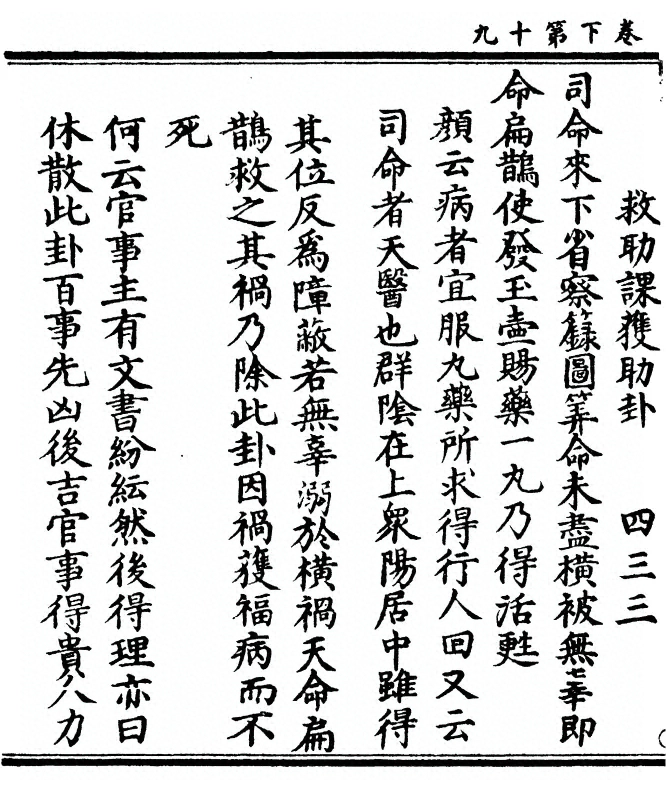 卷下第十九
救助課獲助卦　四三三
司命來下省察籙圖筭命未盡橫被無辜即
命扁鵲使發玉壺賜藥一丸乃得活甦
顏云病者宜服丸藥所求得行人回又云
司命者天醫也群陰在上眾陽居中雖得
其位反為障蔽若無辜溺於橫禍天命扁
鵲救之其禍乃除此卦因禍獲福病而不
死
何云官事主有文書紛紜然後得理亦曰
休散此卦百事先凶後吉官事得貴人力